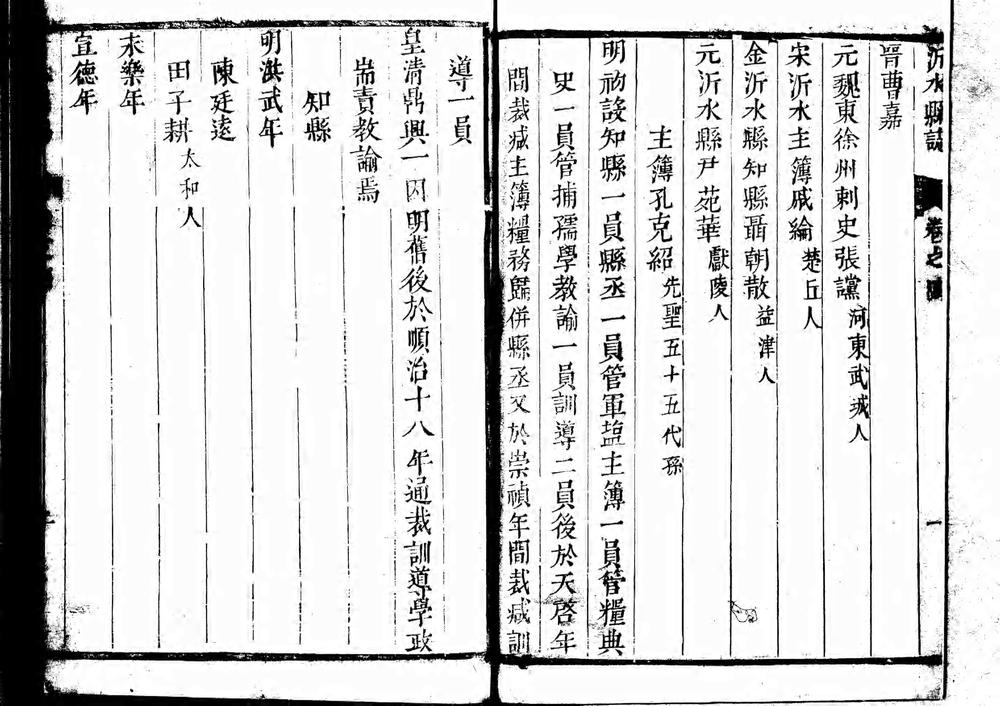 沂水縣誌 卷之四 一
晉曹嘉
元魏東徐州刺史張讜河東武城人
宋沂水主簿戚綸楚丘人
金沂水縣知縣聶朝散益津人
元沂水縣尹苑華獻陵人
主簿孔克紹先聖五十五代孫
明初設知縣一員縣丞一員管軍盐主簿一員管糧典
史一員管捕孺學教諭一員訓導二員後於天啓年
間裁减主簿糧務歸併縣丞又於崇禎年間裁减訓
導一員
皇清鼎興一因明舊後於順治十八年通裁訓導學政
耑責教諭焉
知縣
明洪武年
陳廷逺
田子耕太和人
永樂年
宣德年